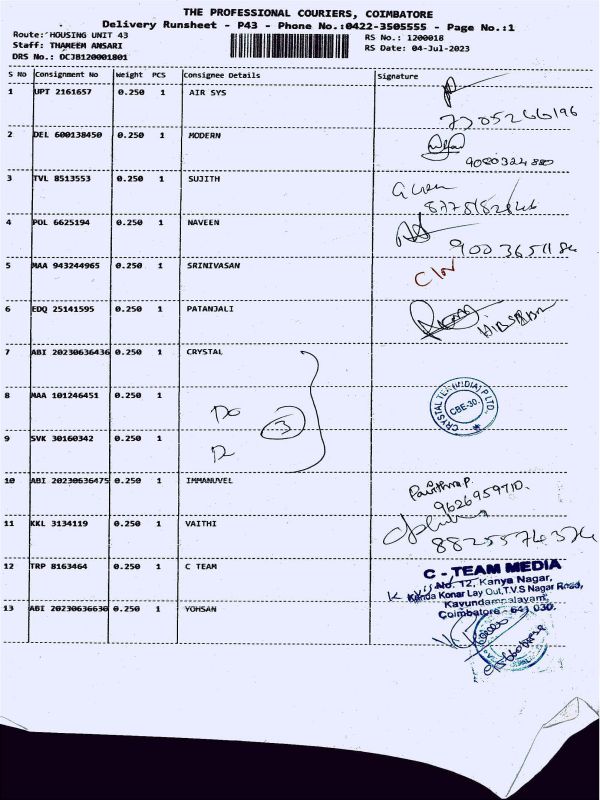 THE PROFESSIONAL COURIERS, COIMBATORE
Delivery Runsheet - P43 - Phone No.:0422-3505555 - Page No.:1
Route: HOUSING UNIT 43 RS No.: 1200018
Staff: THAMEEM ANSARI RS Date: 04-Jul-2023
DRS No.: OCJB120001801
S No Consignment No Weight PCS Consignee Details Signature
1 UPT 2161657 0.250 1 AIR SYS
7305266196
2 DEL 600138450 0.250 1 MODERN
9080324880
3 TVL 8513553 0.250 1 SUJITH
4 POL 6625194 0.250 1 NAVEEN
5 MAA 943244965 0.250 1 SRINIVASAN
6 EDQ 25141595 0.250 1 PATANJALI
7 ABI 20230636436 0.250 1 CRYSTAL
8 MAA 101246451 0.250 1
3
CBE-30.
9 SVK 30160342 0.250 1
10 ABI 20230636475 0.250 1 IMMANUVEL
9626959710.
11 KKL 3134119 0.250 1 VAITHI
8825574324
12 TRP 8163464 0.250 1 C TEAM
C - TEAM MEDIA
No. 12, Kanya Nagar,
Konar Lay Out, T.V.S Nagar Road,
Kavundampalayam,
Coimbatore - 641 030.
13 ABI 20230636630 0.250 1 YOHSAN